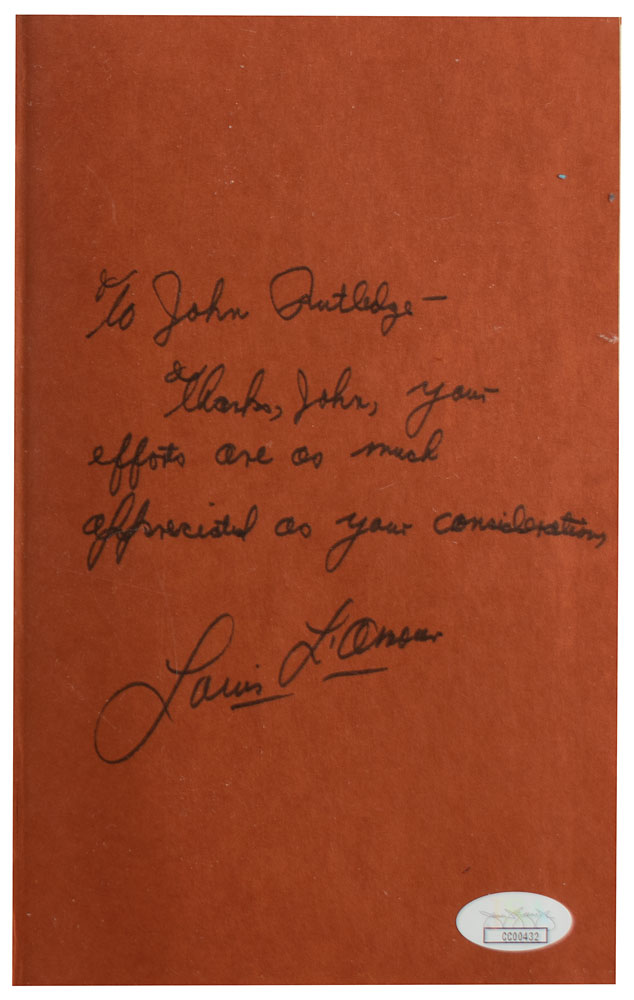 To John Rutledge —
Thanks, John, your
efforts are as much
appreciated as your consideration,
Louis L'Amour
CC00432